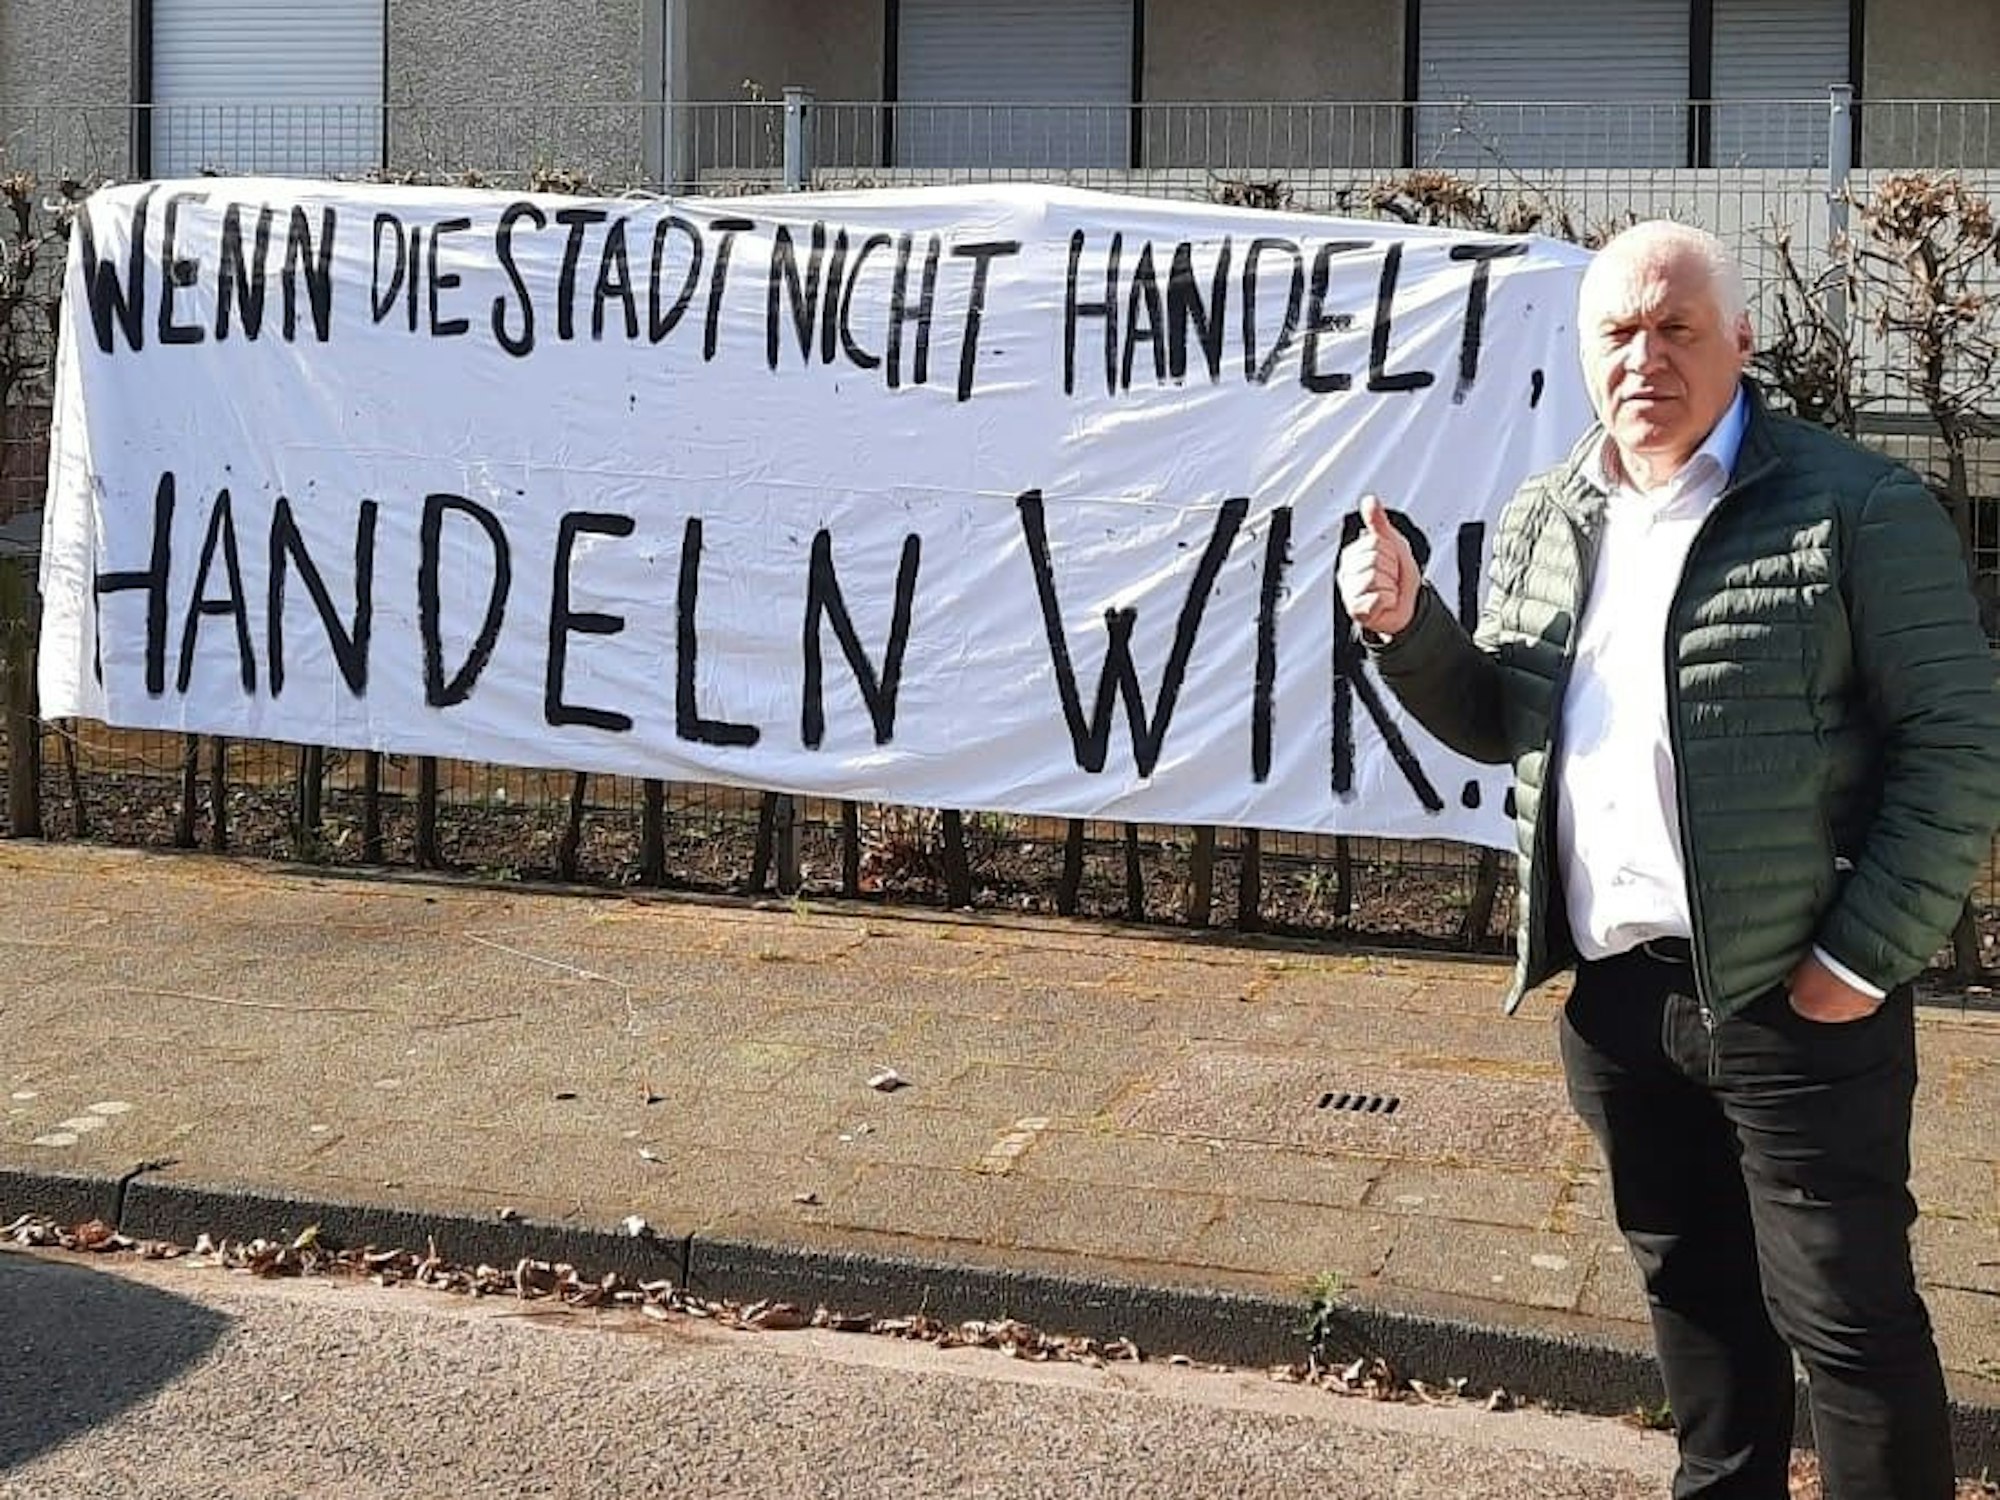 WENN DIE STADT NICHT HANDELT,
HANDELN WIR!